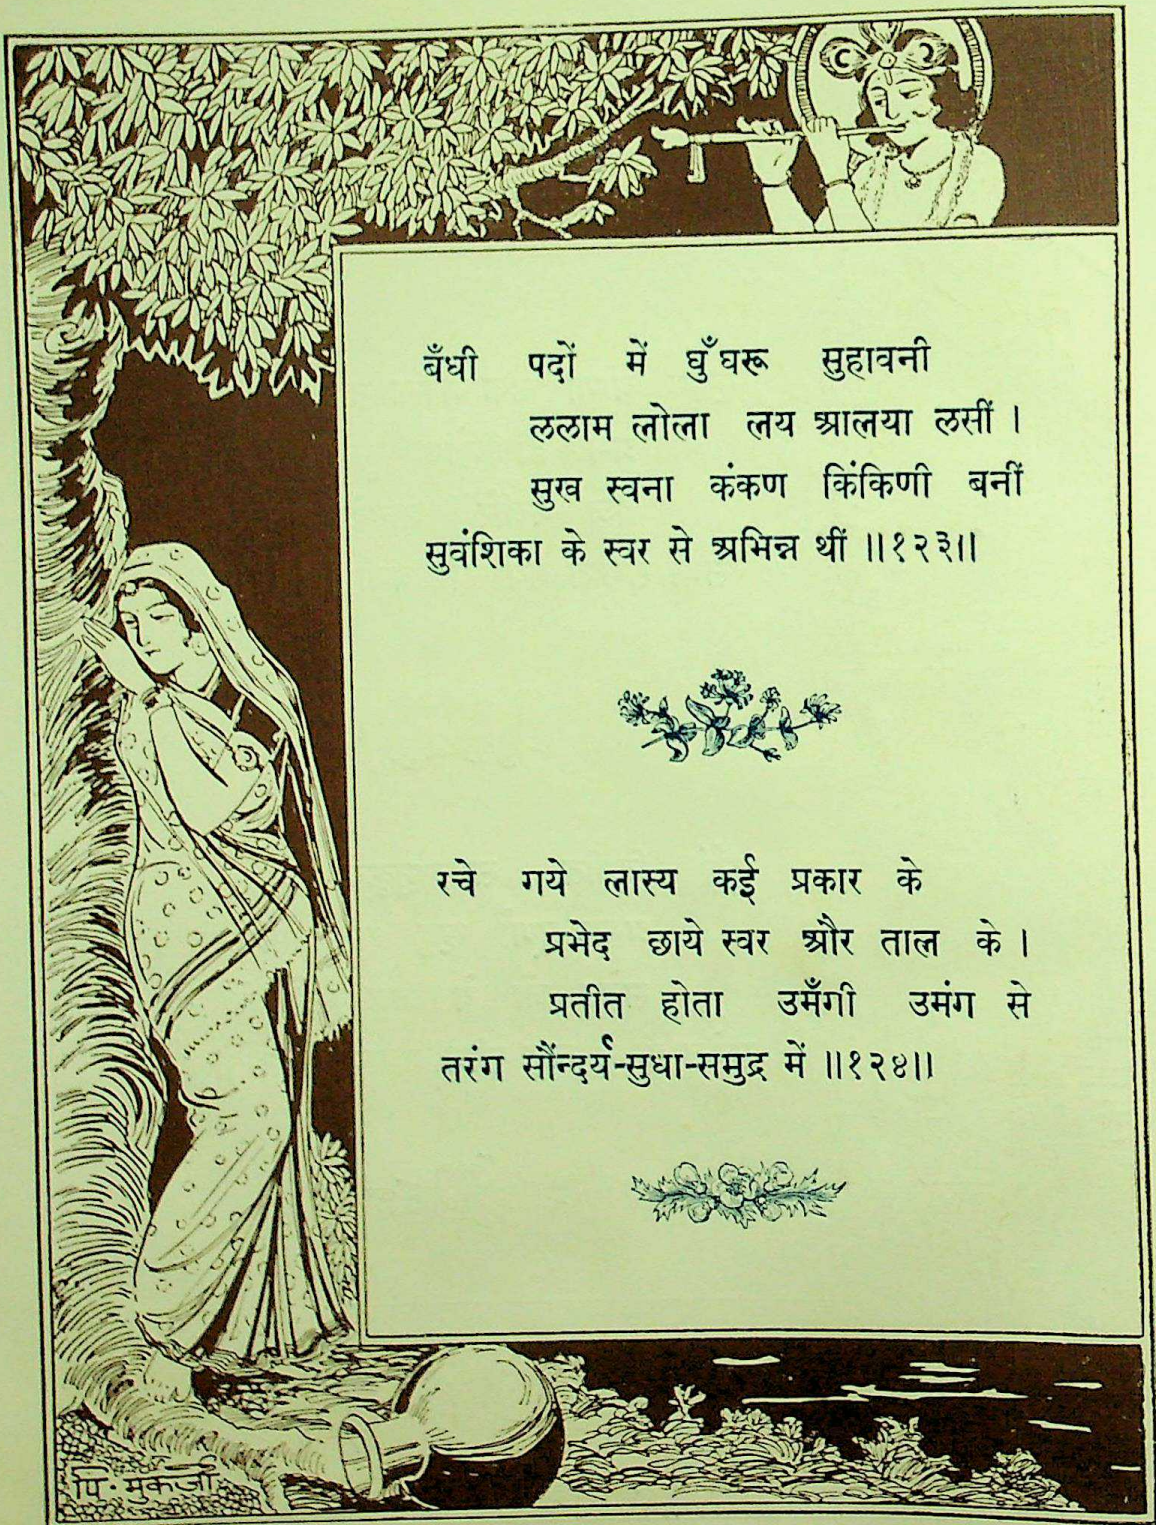 बँधी पदों में घुँघरू सुहावनी
ललाम लोला लय आलया लसीं ।
सुख स्वना कंकण किंकिणी बनीं
सुवंशिका के स्वर से अभिन्न थीं ॥१२३॥
रचे गये लास्य कई प्रकार के
प्रभेद छाये स्वर और ताल के ।
प्रतीत होता उमँगी उमंग से
तरंग सौंन्दर्य-सुधा-समुद्र में ॥१२४॥
पि. मुकर्जी